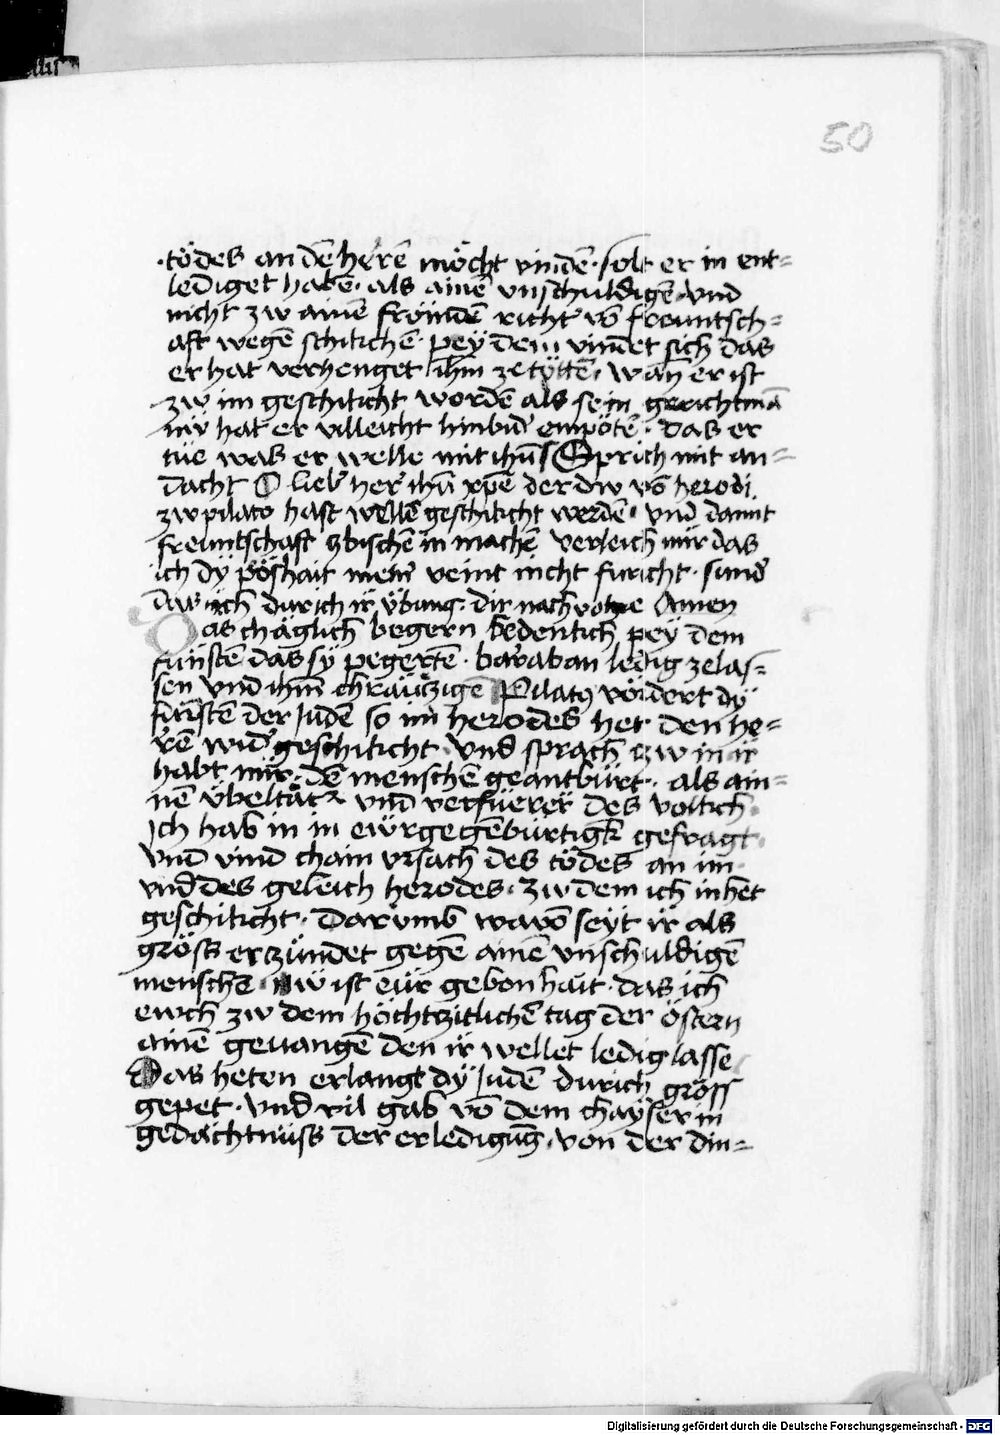 50
·tödes an dē hērē möcht vindē · solt er in ent=
lediget habē · als ainē vnschuldigē · vnd
nicht zw ainē frömdē richt' vō freuntsch=
aft wegē schikchē · pey dem vindet sich das
er hat verhenget ihm ze tӱttē · wan er ist
zw im geschikcht wordē als sein gerichtmā
nw hat er villeicht hinbid' empotē · das er
tüe was er welle mit ihm Sprich mit an=
dacht O lieb' her' ihū xpē der dw vō herodi
zw pilato hast wellē geschikcht werdē · vnd damit
freuntschaft zbischē in machē verleich mir das
ich dӱ pöshait meī veint nicht füricht · sund'
das ich durich ir ӱbung · dir nachvolge Amen
Das chläglich begern bedeutich pey dem
fürstē das sӱ pegertē · baraban ledig ze las=
sen vnd ihm chräutzigē Pilatus vördert dӱ
fürstē der Judē so im herodes het den he=
rē wid' geschikcht · vnd sprach zw in ir
habt mir · dē menschē geantbürt · als ain=
nen übeltätr vnd verfüerer des volkch
Ich hab in in ewr gegēbürtigk gefragt
vnd vind chain vrsach des tödes an im
vnd des geleich herodes · zw dem ich in het
geschikcht · Darumb waō seyt ir als
gröss erzündet gegē ainē vnschuldigē
menschē · nw ist eür gebonhait · das ich
ewch zw dem höchtzitlichē tag der östern
ainē geuangē den ir wellet ledig lasse
Das heten erlangt dӱ Judē durich gröss
gepet · vnd vil gab vō dem chayser in
gedächtnüss der erledigūg · von der din=
Digitalisierung gefördert durch die Deutsche Forschungsgemeinschaft - DFG